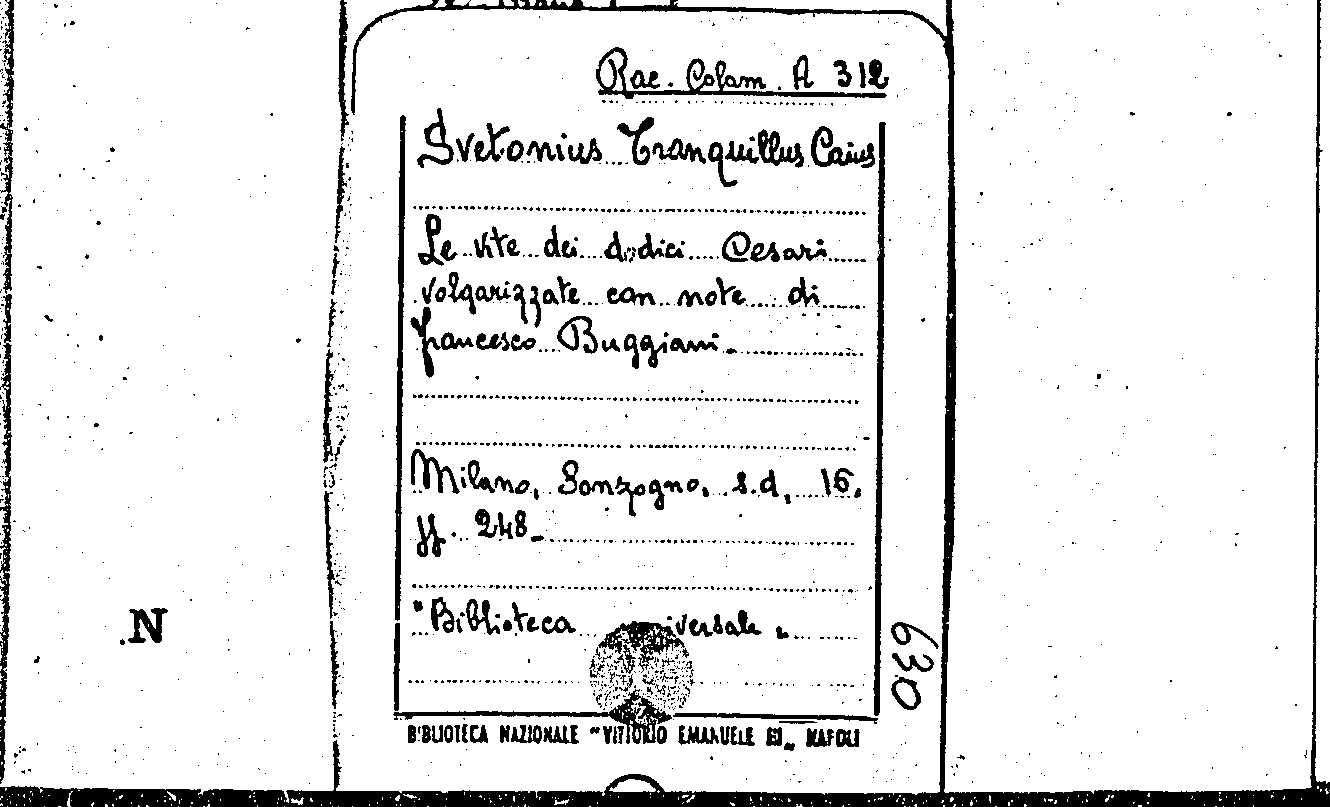 Rac. Colam. A 312
Svetonius Tranquillus Caius
Le vite dei dodici Cesari
volgarizzate con note di
Francesco Buggiani.
Milano, Sonzogno, s.d., 16.
ff. 248.
"Biblioteca
630
N
BIBLIOTECA NAZIONALE "VITTORIO EMANUELE III„ NAPOLI